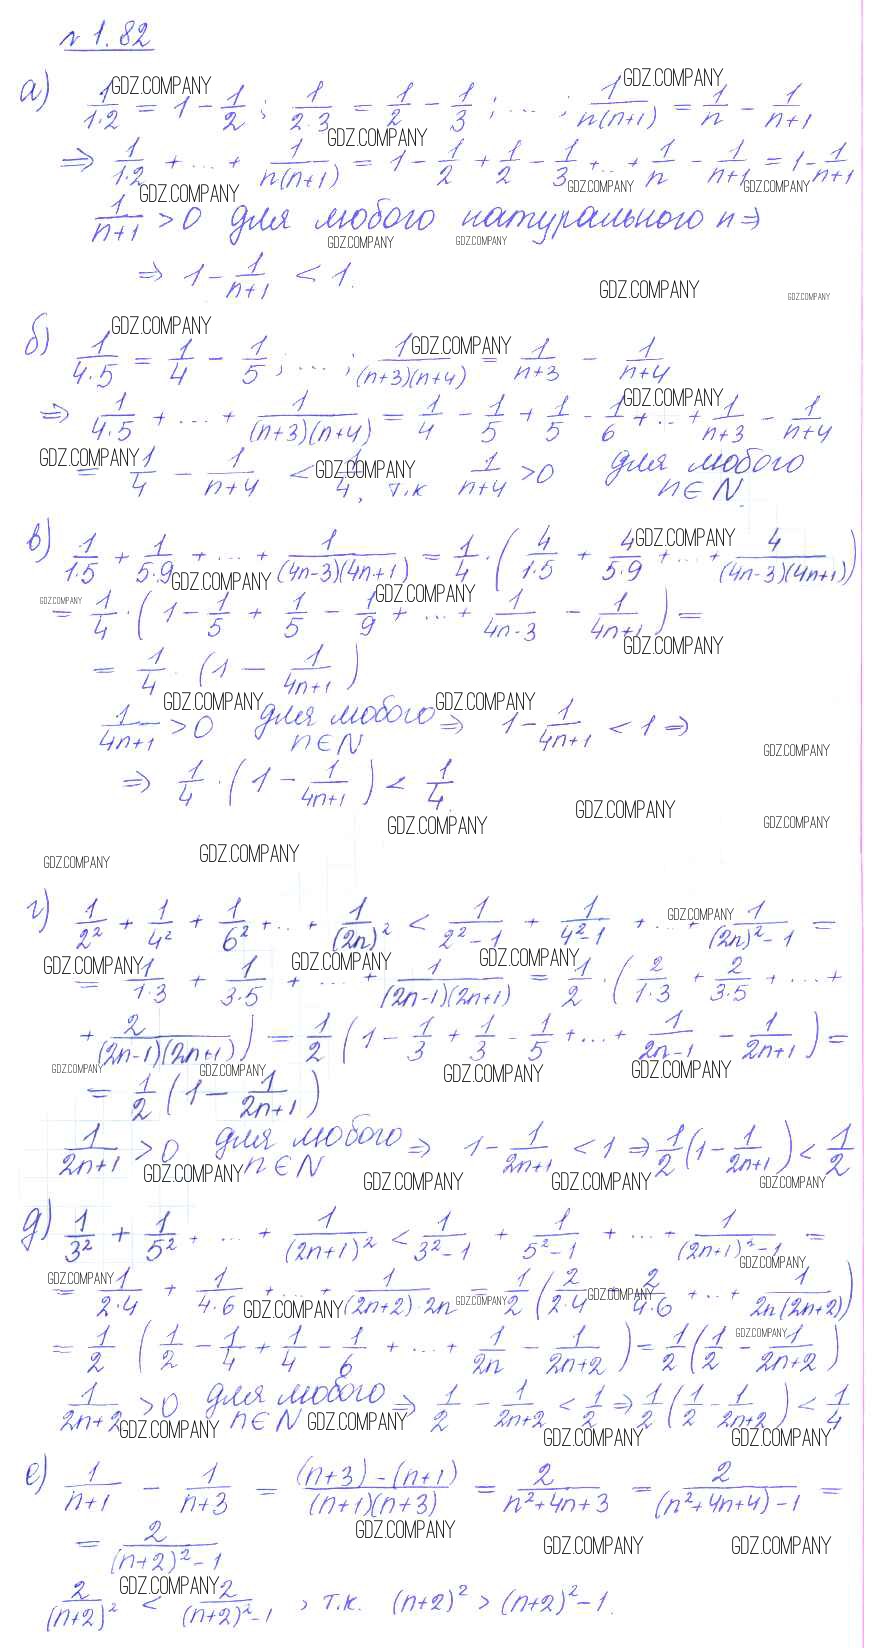 № 1.82
а) 1/(1·2) = 1 - 1/2 ; 1/(2·3) = 1/2 - 1/3 ; ... ; 1/(n(n+1)) = 1/n - 1/(n+1)
⇒ 1/(1·2) + ... + 1/(n(n+1)) = 1 - 1/2 + 1/2 - 1/3 + ... + 1/n - 1/(n+1) = 1 - 1/(n+1)
1/(n+1) > 0 для любого натурального n ⇒
⇒ 1 - 1/(n+1) < 1.
б) 1/(4·5) = 1/4 - 1/5 ; ... ; 1/((n+3)(n+4)) = 1/(n+3) - 1/(n+4)
⇒ 1/(4·5) + ... + 1/((n+3)(n+4)) = 1/4 - 1/5 + 1/5 - 1/6 + ... + 1/(n+3) - 1/(n+4)
= 1/4 - 1/(n+4) < 1/4, т.к 1/(n+4) > 0 для любого n ∈ N.
в) 1/(1·5) + 1/(5·9) + ... + 1/((4n-3)(4n+1)) = 1/4 · (4/(1·5) + 4/(5·9) + ... + 4/((4n-3)(4n+1)))
= 1/4 · (1 - 1/5 + 1/5 - 1/9 + ... + 1/(4n-3) - 1/(4n+1)) =
= 1/4 · (1 - 1/(4n+1))
1/(4n+1) > 0 для любого n ∈ N ⇒ 1 - 1/(4n+1) < 1 ⇒
⇒ 1/4 · (1 - 1/(4n+1)) < 1/4.
г) 1/2² + 1/4² + 1/6² + ... + 1/(2n)² < 1/(2²-1) + 1/(4²-1) + ... + 1/((2n)²-1) =
= 1/(1·3) + 1/(3·5) + ... + 1/((2n-1)(2n+1)) = 1/2 · (2/(1·3) + 2/(3·5) + ... +
+ 2/((2n-1)(2n+1))) = 1/2 (1 - 1/3 + 1/3 - 1/5 + ... + 1/(2n-1) - 1/(2n+1)) =
= 1/2 (1 - 1/(2n+1))
1/(2n+1) > 0 для любого n ∈ N ⇒ 1 - 1/(2n+1) < 1 ⇒ 1/2 (1 - 1/(2n+1)) < 1/2
д) 1/3² + 1/5² + ... + 1/(2n+1)² < 1/(3²-1) + 1/(5²-1) + ... + 1/((2n+1)²-1) =
= 1/(2·4) + 1/(4·6) + ... + 1/((2n+2)·2n) = 1/2 (2/(2·4) + 2/(4·6) + ... + 1/(2n(2n+2)))
= 1/2 (1/2 - 1/4 + 1/4 - 1/6 + ... + 1/(2n) - 1/(2n+2)) = 1/2 (1/2 - 1/(2n+2))
1/(2n+2) > 0 для любого n ∈ N ⇒ 1/2 - 1/(2n+2) < 1/2 ⇒ 1/2 (1/2 - 1/(2n+2)) < 1/4
е) 1/(n+1) - 1/(n+3) = ((n+3)-(n+1))/((n+1)(n+3)) = 2/(n²+4n+3) = 2/((n²+4n+4)-1) =
= 2/((n+2)²-1)
2/(n+2)² < 2/((n+2)²-1) , т.к. (n+2)² > (n+2)²-1.
GDZ.COMPANY